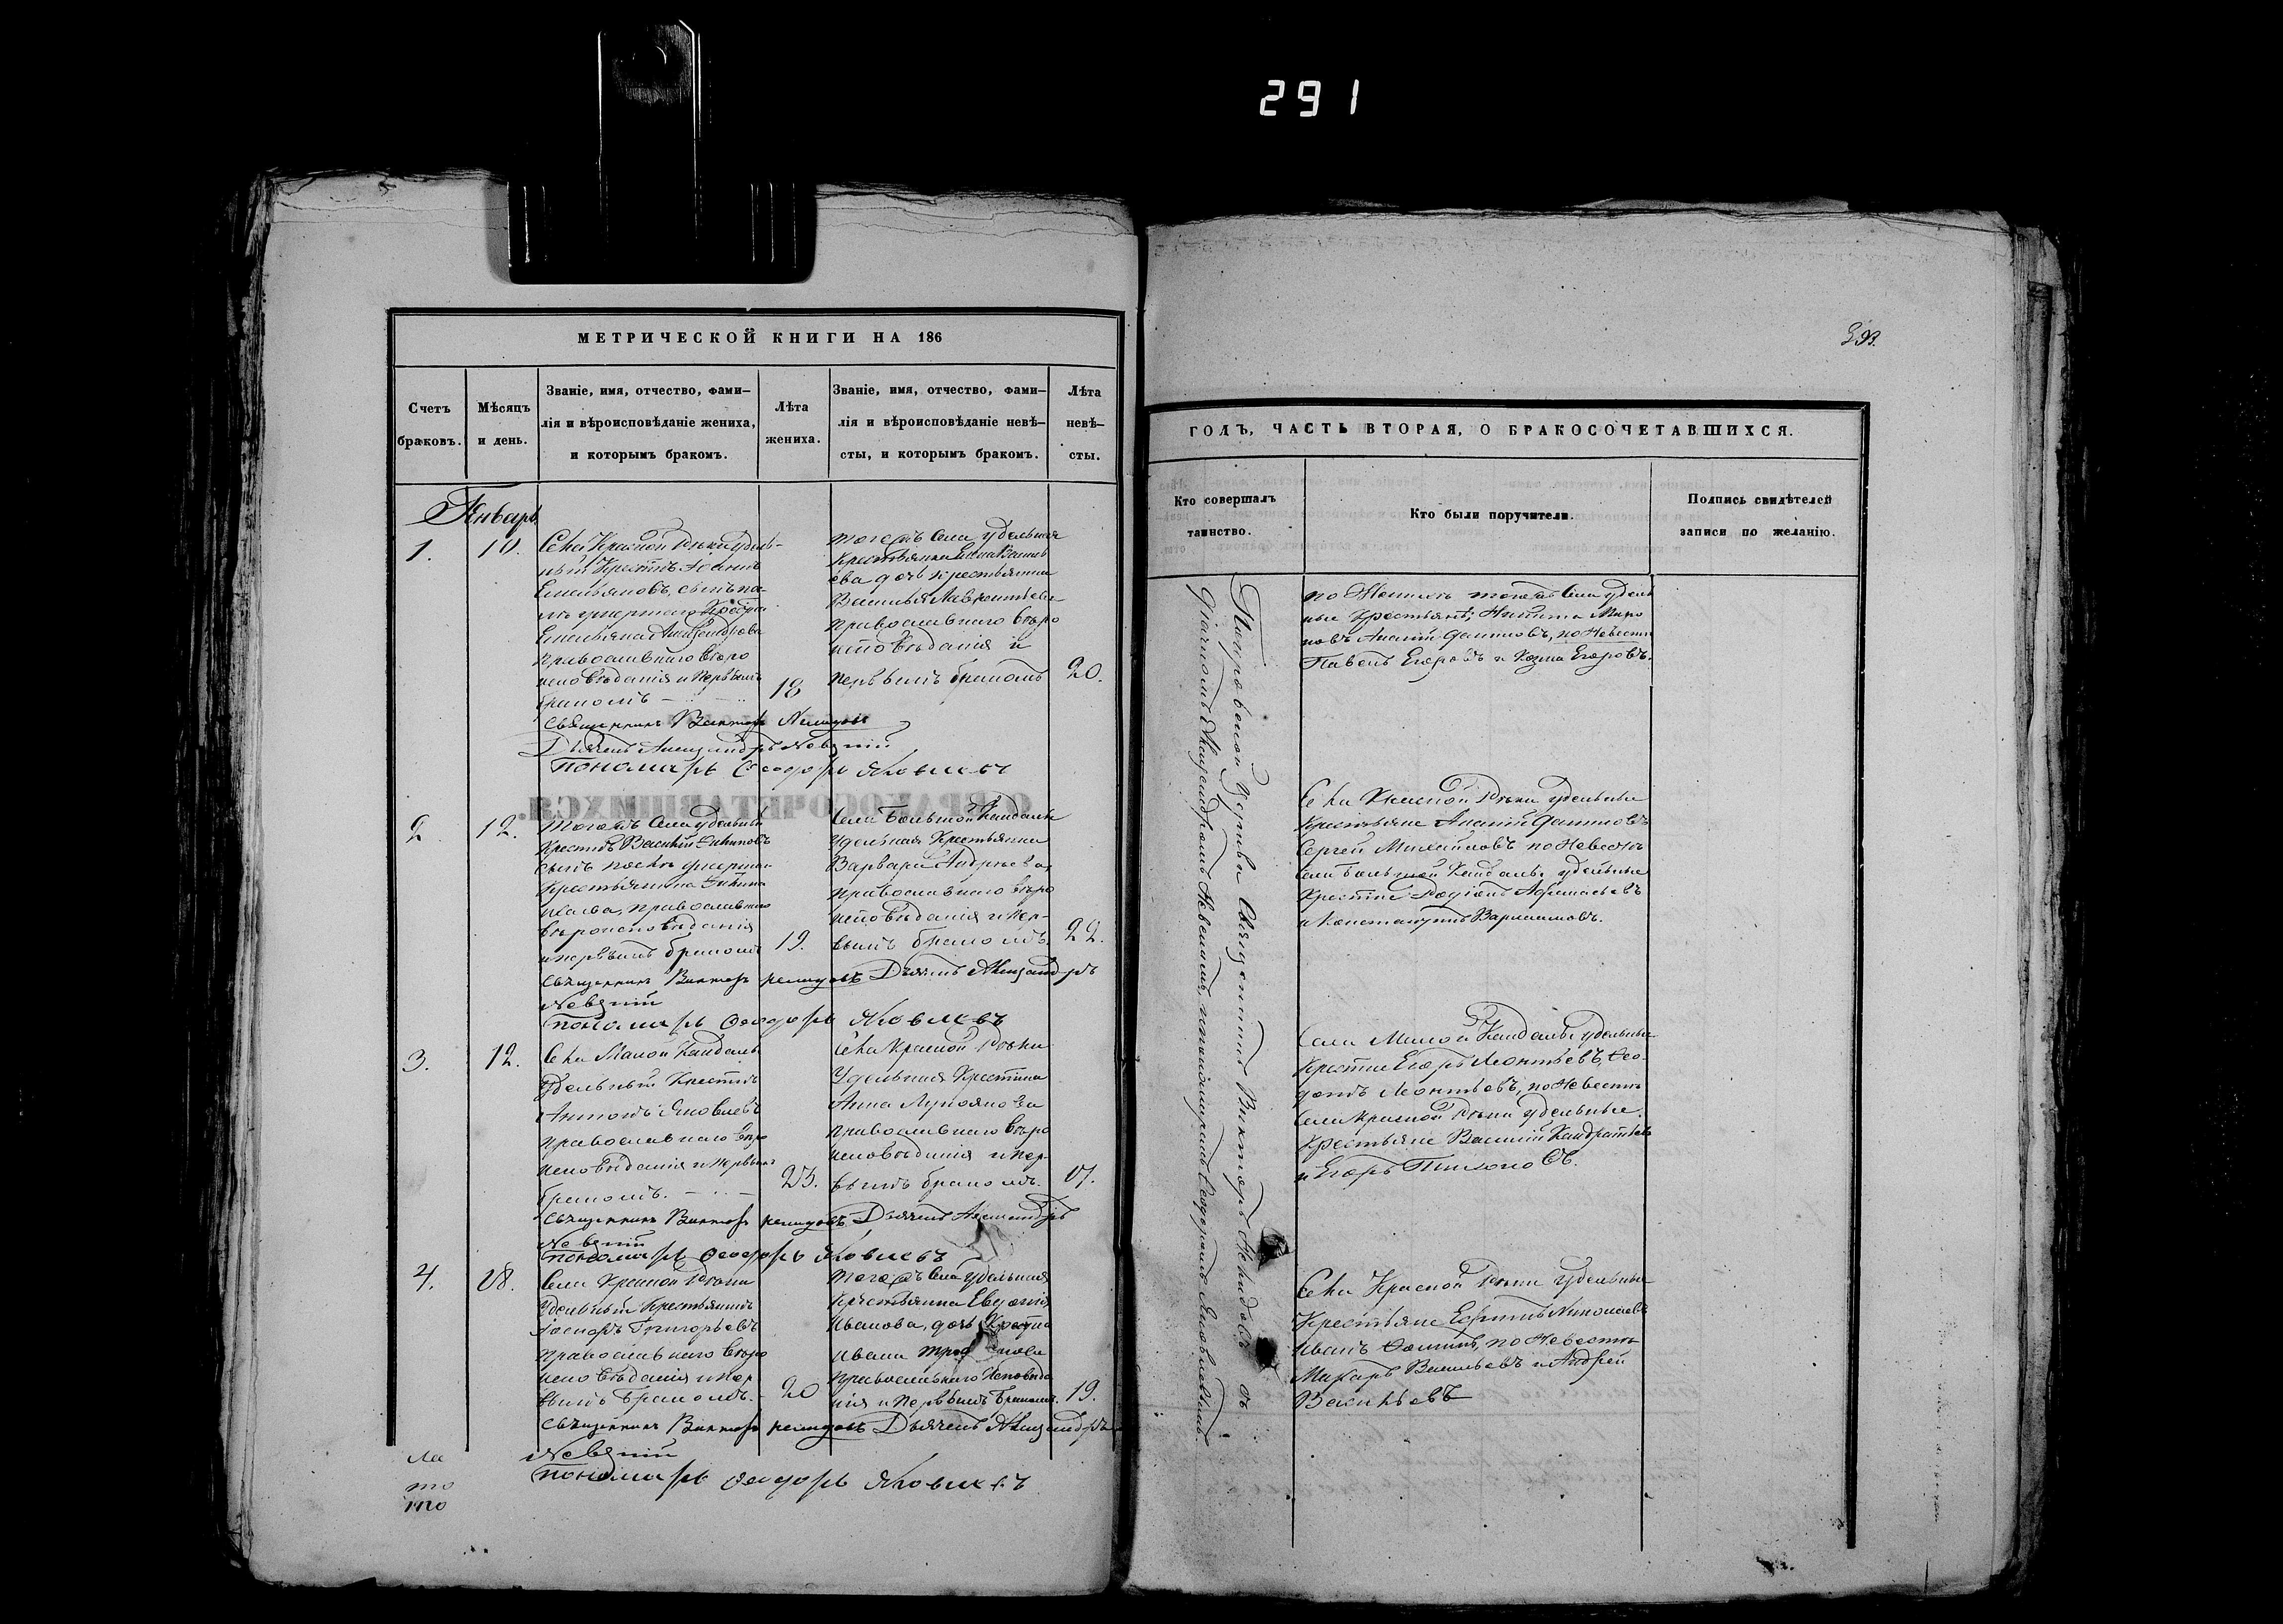 291
МЕТРИЧЕСКОЙ КНИГИ НА 186
Счетъ браковъ.
Мѣсяцъ и день.
Званіе, имя, отчество, фами-
лія и вѣроисповѣданіе жениха,
и которымъ бракомъ.
Лѣта жениха.
Званіе, имя, отчество, фами-
лія и вѣроисповѣданіе невѣ-
сты, и которымъ бракомъ.
Лѣта невѣ-
сты.
Январь
1.
10.
Села Красной Рѣки удѣль-
ный Крестнъ
Емельяновъ, сынъ по-
Емельяна Александрова
православнаго вѣро
исповѣданія и первымъ
бракомъ
18
тогожъ села удѣльная
Крестьянка Елена Василь
ева дочь крестьянина
Василья Лаврентьева
православнаго вѣро
исповѣданія и
первымъ бракомъ
20.
Священникъ Викторъ
Дьячекъ Александръ Невскій
Пономарь Ѳеодоръ Яковлевъ
О БРАКОСОЧЕТАВШИХСЯ.
2
12.
Тогожъ села удѣльный
Крестнъ Василій
сынъ послѣ умерша
Крестьянина
православнаго
вѣроисповѣданія
и первымъ бракомъ
19.
Села Большой Кандалы
удѣльная Крестьянка
Варвара Андреева,
православнаго вѣро
исповѣданія и пер-
вымъ бракомъ.
22.
Священникъ Викторъ Дьячекъ Александръ
Невскій
Пономарь Ѳеодоръ Яковлевъ
3.
12.
Села Малой Кандалы
Удѣльный Крестнъ
Антонъ Яковлевъ
православнаго вѣро
исповѣданія и первымъ
бракомъ.
23.
Села Красной Рѣки
Удѣльная Крестнка
Анна Лукоянова
православнаго вѣро
исповѣданія и пер-
вымъ бракомъ.
Священникъ Викторъ Дьячекъ Александръ
Невскій
Пономарь Ѳеодоръ Яковлевъ
4.
28.
Села Красной Рѣки
Удѣльный Крестьянинъ
Григорьевъ
православнаго вѣро
исповѣданія и пер
вымъ бракомъ.
20
Тогожъ села удѣльная
Крестьянка Евдокія
Иванова, дочь Крестна
Ивана
православнаго исповѣда
нія и первымъ бракомъ.
19.
Священникъ Викторъ Дьячекъ Александръ
Невскій
Пономарь Ѳеодоръ Яковлевъ
ГОДЪ, ЧАСТЬ ВТОРАЯ, О БРАКОСОЧЕТАВШИХСЯ.
Кто совершалъ
таинство.
Кто были поручители.
Подпись свидѣтелей
записи по желанію.
Священникъ Викторъ съ
Дьячкомъ Александромъ Невскимъ, и пономаремъ Ѳеодоромъ Яковлевымъ.
по Женихѣ тогожъ села удѣль
ные Крестьяне; Никита Миро
новъ по Невестѣ
Павелъ Егоровъ и Козма Егоровъ.
Села Красной Рѣки удѣльные
Крестьяне
Сергей Михайловъ по Невестѣ
села Большой Кандалы удѣльные
Крестне Родіонъ Афанасьевъ
и Константинъ
Села Малой Кандалы удѣльные
Крестне Егоръ Леонтьевъ, Ѳео-
дотъ Леонтьевъ, по Невестѣ
села Красной Рѣки удѣльные
Крестьяне Василій Кандратьевъ
и Егоръ
Села Красной Рѣки удѣльные
Крестьяне Николаевъ
Иванъ по Невестѣ
Макаръ Васильевъ и Андрей
Васильевъ